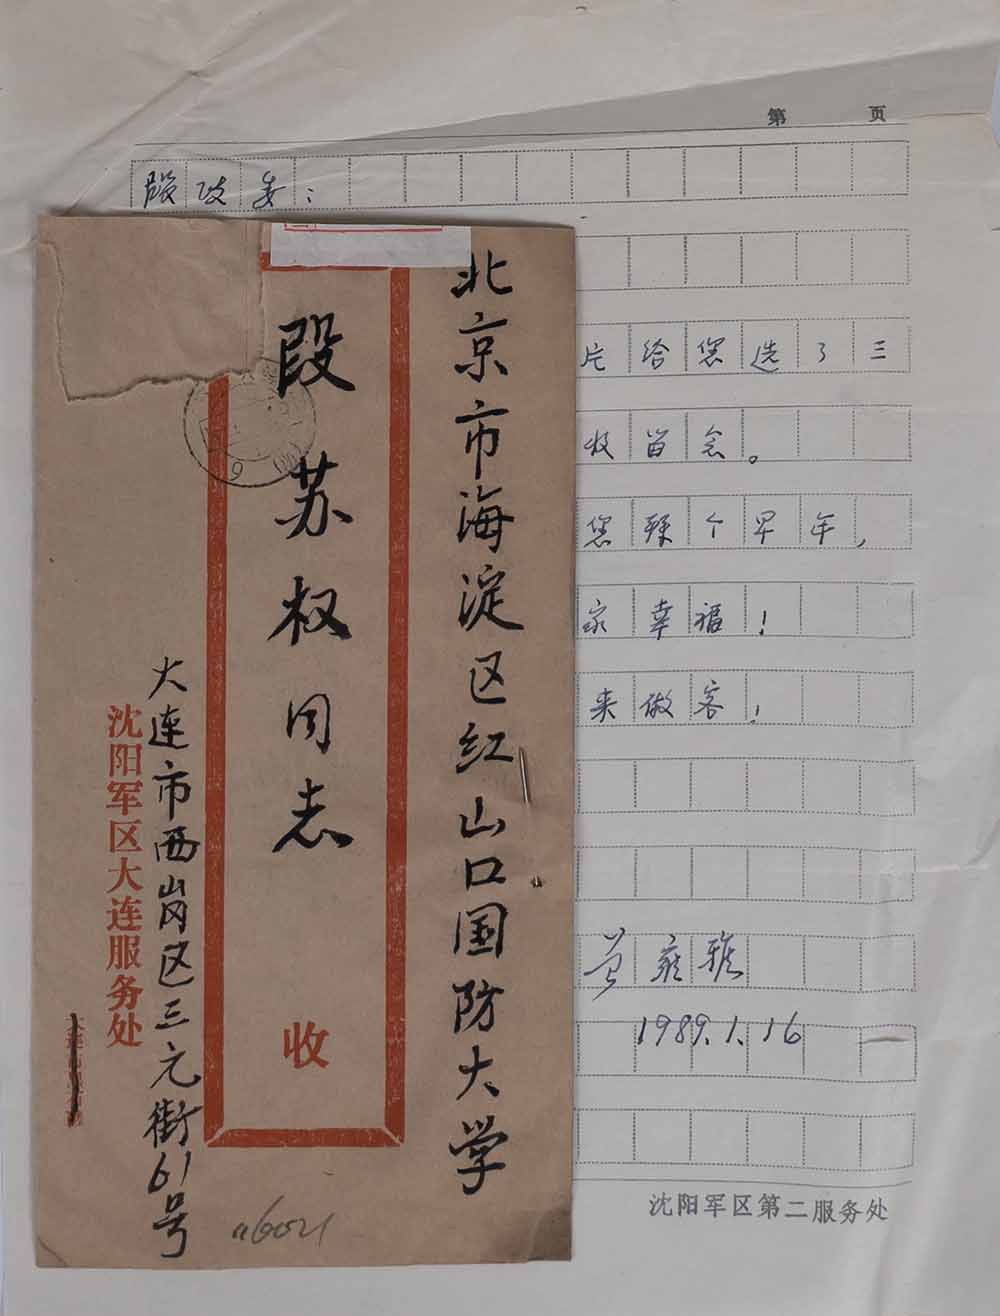 北京市海淀区红山口国防大学
段苏权同志
收
大连市西岗区三元街61号
沈阳军区大连服务处
第 页
段政委：
片给您选了三
收留念。
您拜个早年，
家幸福！
来做客！
雍雅
1989.1.16
沈阳军区第二服务处